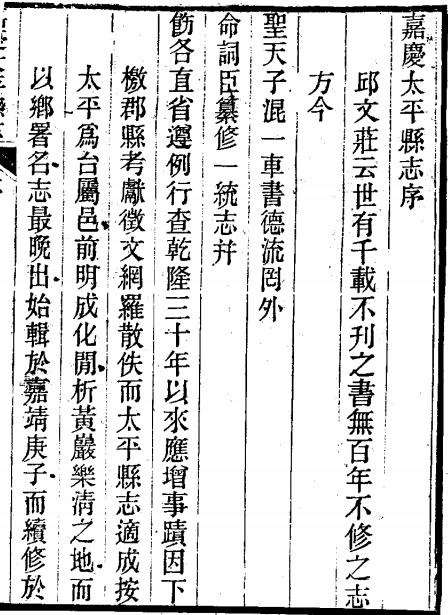 嘉慶太平縣志序
邱文莊云世有千載不刊之書無百年不修之志
方今
聖天子混一車書德流罔外
命詞臣纂修一統志幷
飭各直省遵例行查乾隆三十年以來應增事蹟因下
檄郡縣考獻徵文網羅散佚而太平縣志適成按
太平爲台屬邑前明成化間析黃巖樂淸之地而
以鄉署名志最晚出始輯於嘉靖庚子而續修於